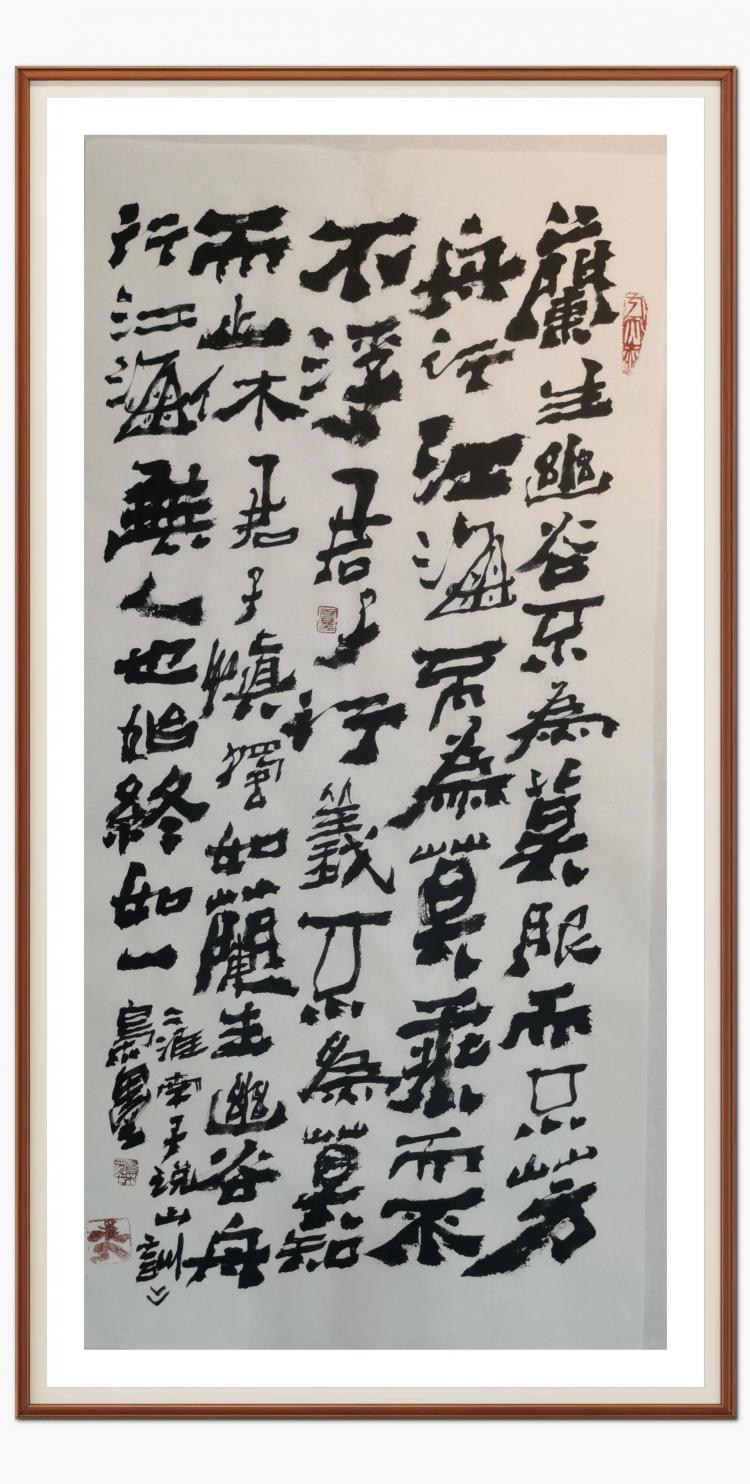 蘭生幽谷不為莫服而不芳
舟行江海不為莫乘而不
不浮君子行義不為莫知
而止休君子慎獨如蘭生幽谷舟
行江海無人也始終如一
淮南子說山訓